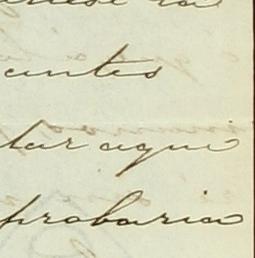 antes
tar aqui
probaria